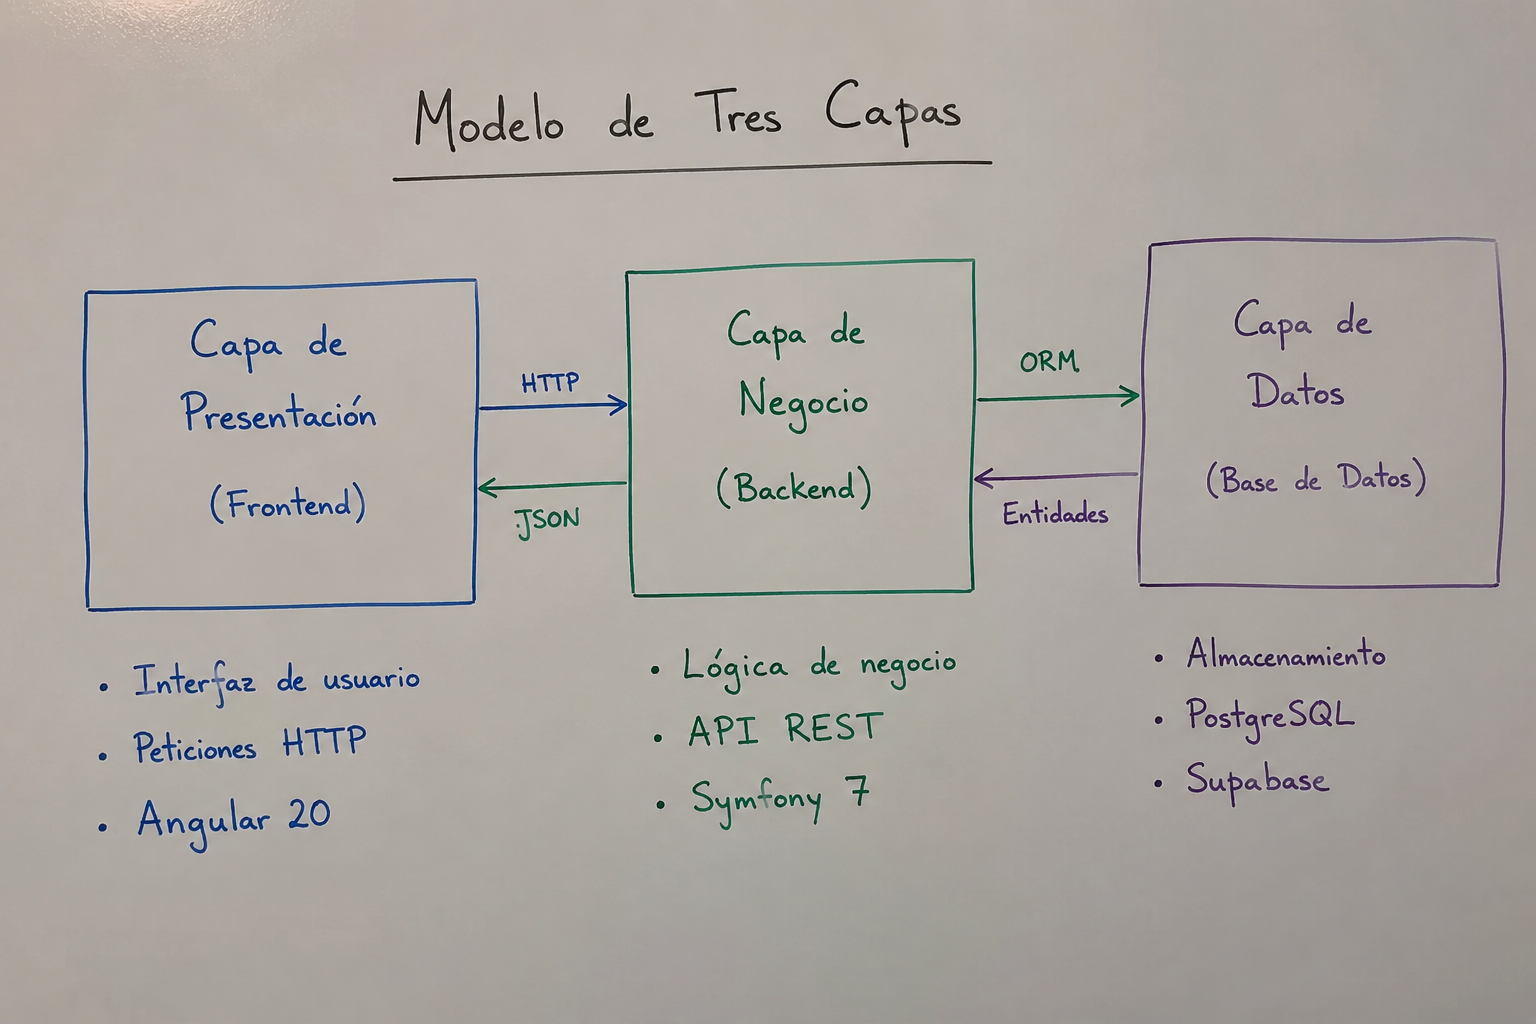 Modelo de Tres Capas
Capa de
Presentación
(Frontend)
HTTP
JSON
Capa de
Negocio
(Backend)
ORM
Entidades
Capa de
Datos
(Base de Datos)
• Interfaz de usuario
• Peticiones HTTP
• Angular 20
• Lógica de negocio
• API REST
• Symfony 7
• Almacenamiento
• PostgreSQL
• Supabase